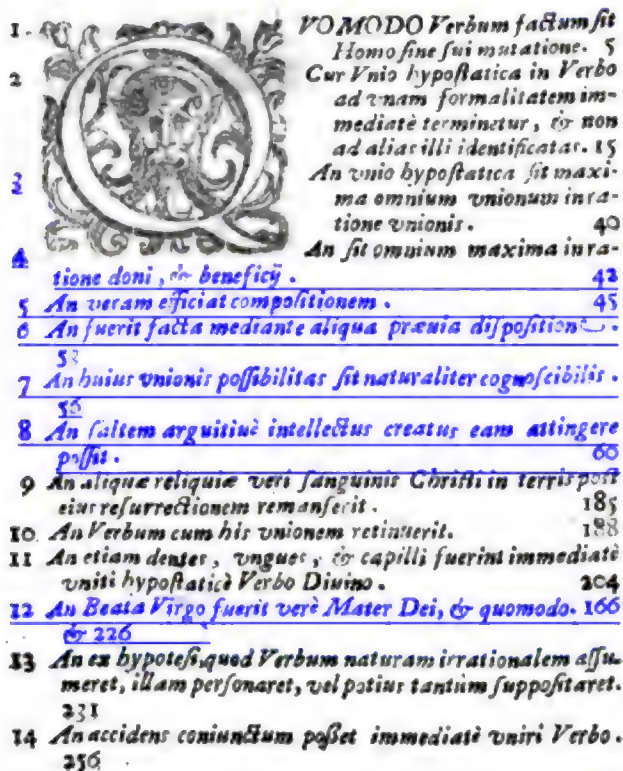 1. QVOMODO Verbum factum sit
Homo sine sui mutatione. 5
2 Cur Vnio hypostatica in Verbo
ad vnam formalitatem im-
mediatè terminetur, & non
ad alias illi identificatas. 15
3 An vnio hypostatica sit maxi-
ma omnium vnionum in ra-
tione vnionis. 40
4 An sit omnium maxima in ra-
tione doni, & beneficij. 42
5 An veram efficiat compositionem. 45
6 An fuerit facta mediante aliqua præuia dispositione.
53
7 An huius vnionis possibilitas sit naturaliter cognoscibilis.
56
8 An saltem arguitiuè intellectus creatus eam attingere
possit. 60
9 An aliquæ reliquiæ veri sanguinis Christi in terris post
eius resurrectionem remanserit. 185
10. An Verbum cum his vnionem retinuerit. 188
11 An etiam dentes, vngues, & capilli fuerint immediatè
vniti hypostaticè Verbo Diuino. 204
12 An Beata Virgo fuerit verè Mater Dei, & quomodo. 166
& 226
13 An ex hypotesi, quod Verbum naturam irrationalem assu-
meret, illam personaret, vel potius tantùm suppositaret.
231
14 An accidens coniunctum posset immediatè vniri Verbo.
256